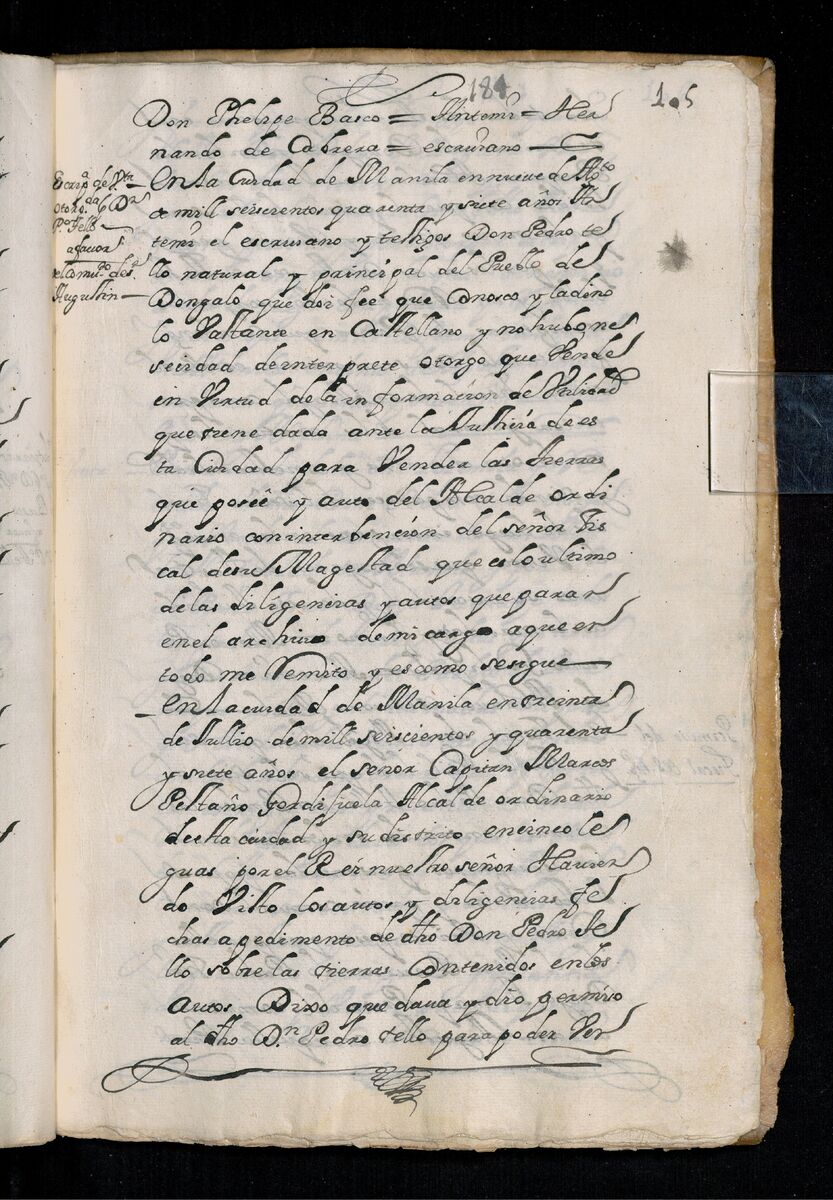 184
105
Don Phelipe Basco = Antemi = Her
nando de Cabrera = escrivano
Escrip.ª de V.ta
otorg.da p.r D.n
P.º Tello
a favor
el Comv.to de S.
Augustin
En la Ciudad de Manila en nueve de Ag.to
de mill seiscientos quarenta y siete años An
temi el escrivano y testigos Don Pedro te
llo natural y principal del Pueblo de
Dongalo que doi feé que Conosco y ladino
lo Vastante en Castellano y no hubo ne
secidad de interprete otorgo que Vende
en Virtud de la informacion de Utilidad
que tiene dada ante la Justicia de es
ta Ciudad para Vender las tierras
que poseé y auto del Alcalde ordi
nario con interbencion del señor Fis
cal de su Magestad que es lo ultimo
de las diligencias y autos que paran
en el archivo de mi cargo a que en
todo me Remito y es como se sigue
En la ciudad de Manila en treinta
de Jullio de mill seiscientos y quarenta
y siete años el señor Capitan Marcos
Pestaño Gordisuela Alcalde ordinario
de esta ciudad y su distrito en cinco le
guas por el Reí nuestro señor Havien
do Visto los autos y diligencias fe
chas a pedimento de dho Don Pedro te
llo sobre las tierras Contenidos en los
Autos Dixo que dava y dio permiso
al dho D.n Pedro tello para poder Ven